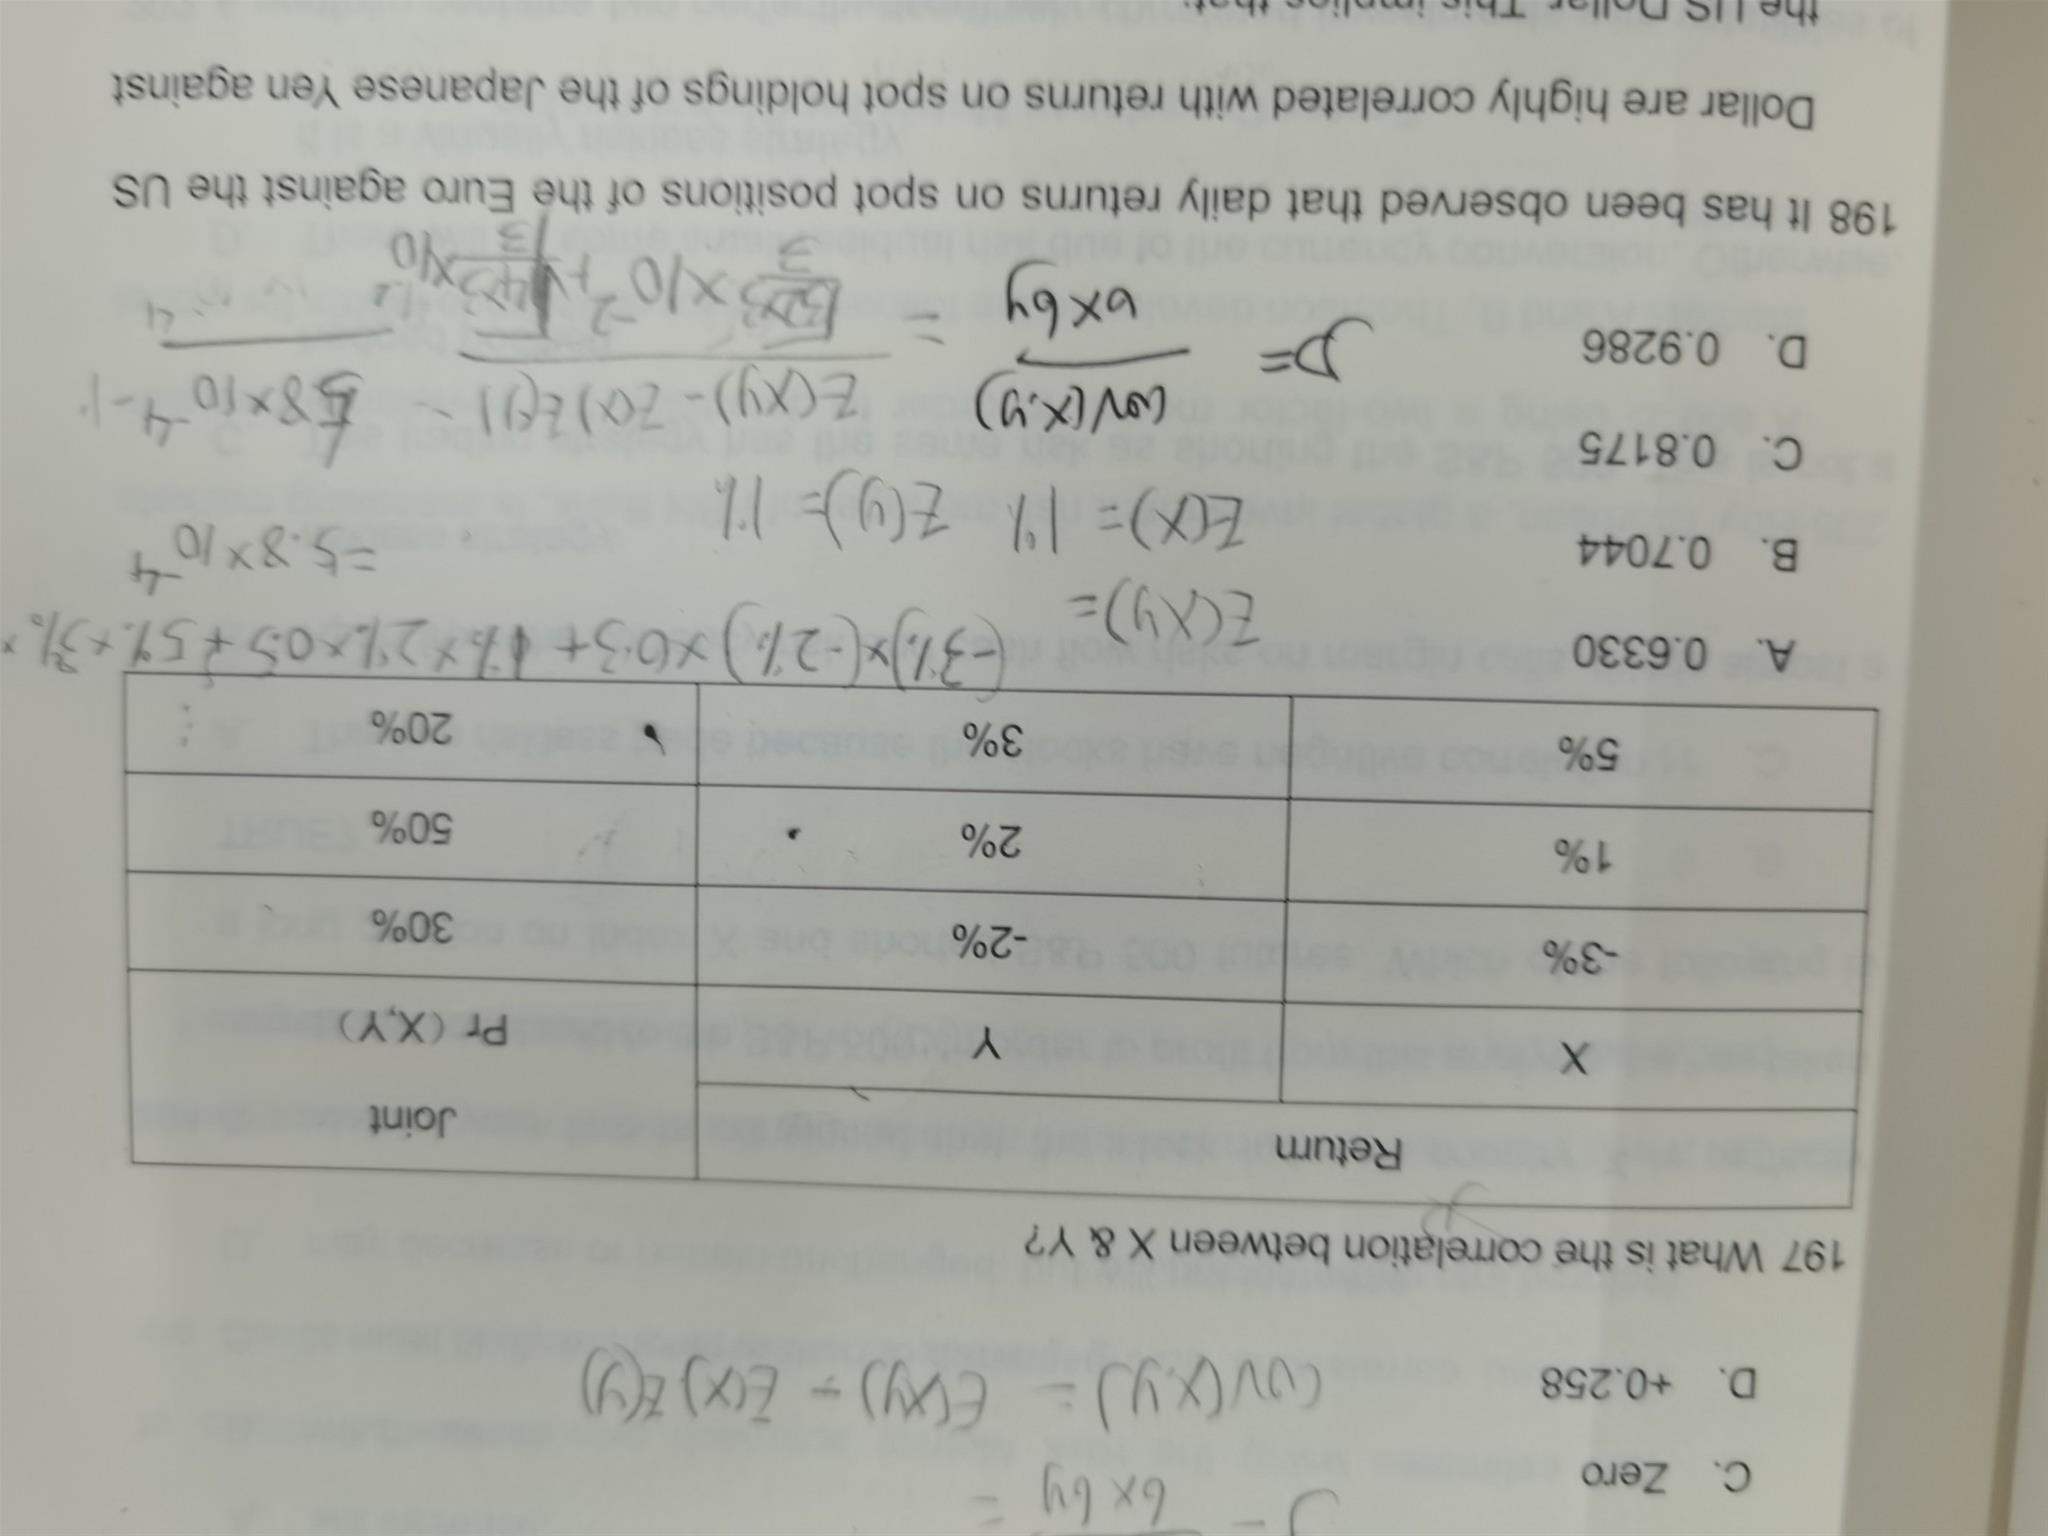 σx σy =
C. Zero
D. +0.258
COV(X,Y) = E(XY) - E(X)E(Y)
197 What is the correlation between X & Y?
Return
Joint
X
Y
Pr (X,Y)
-3%
-2%
30%
1%
2%
50%
5%
3%
20%
A. 0.6330
B. 0.7044
C. 0.8175
D. 0.9286
E(XY)=
(-3%)×(-2%)×0.3+1%×2%×0.5+5%×3%×
=5.8×10-4
E(X)=1% E(Y)=1%
COV(X,Y)
σxσy
E(XY)-E(X)E(Y)
198 It has been observed that daily returns on spot positions of the Euro against the US
Dollar are highly correlated with returns on spot holdings of the Japanese Yen against
the US Dollar. This implies that: